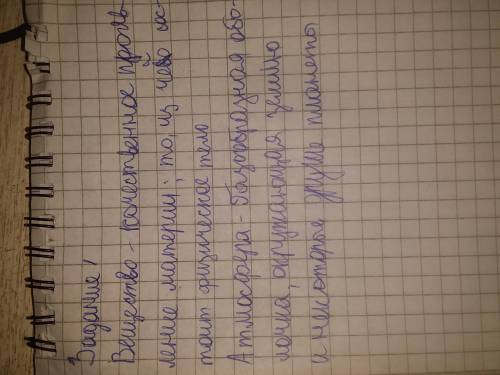 Задание!
Вещество - качественное прояв-
ление материи; то, из чего сос-
тоит физическое тело
Атмосфера - Газообразная обо-
лочка, окружающая землю
и некоторые другие планеты